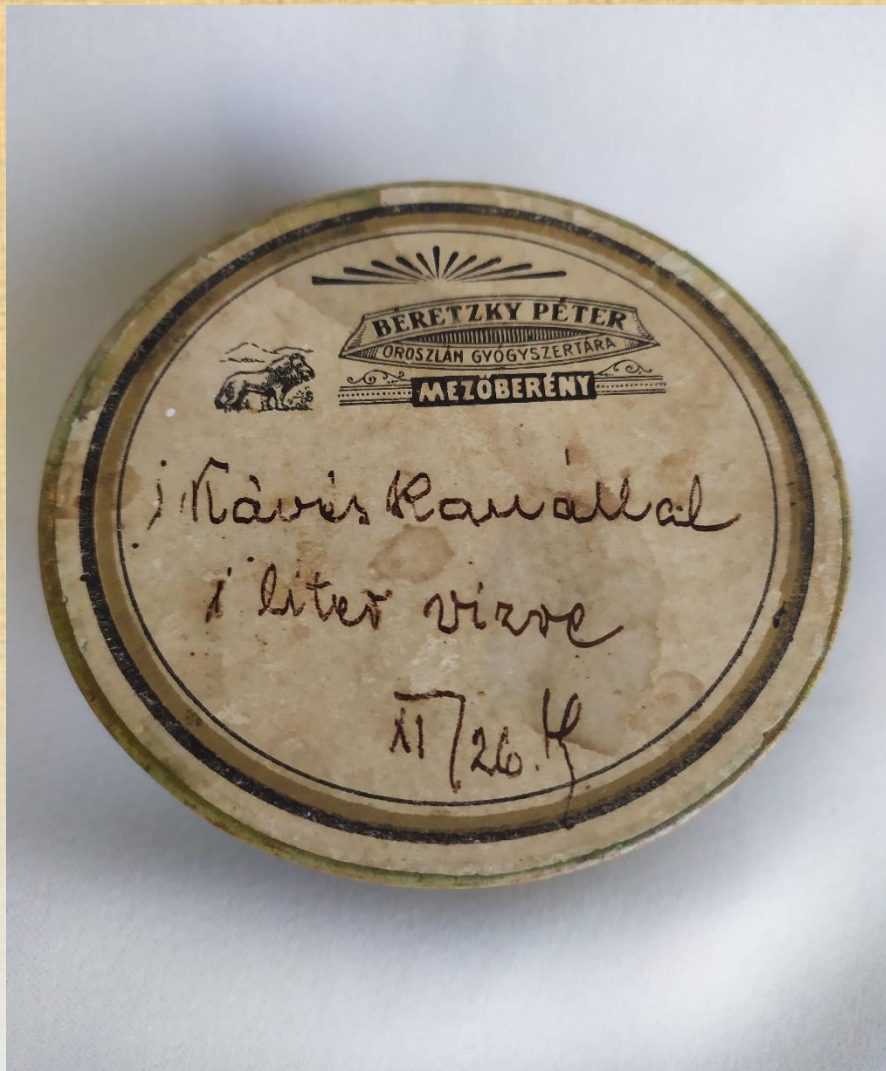 BERETZKY PÉTER
OROSZLÁN GYÓGYSZERTÁRA
MEZŐBERÉNY
1 Kávés kanállal
1 liter vízre
XI/26.